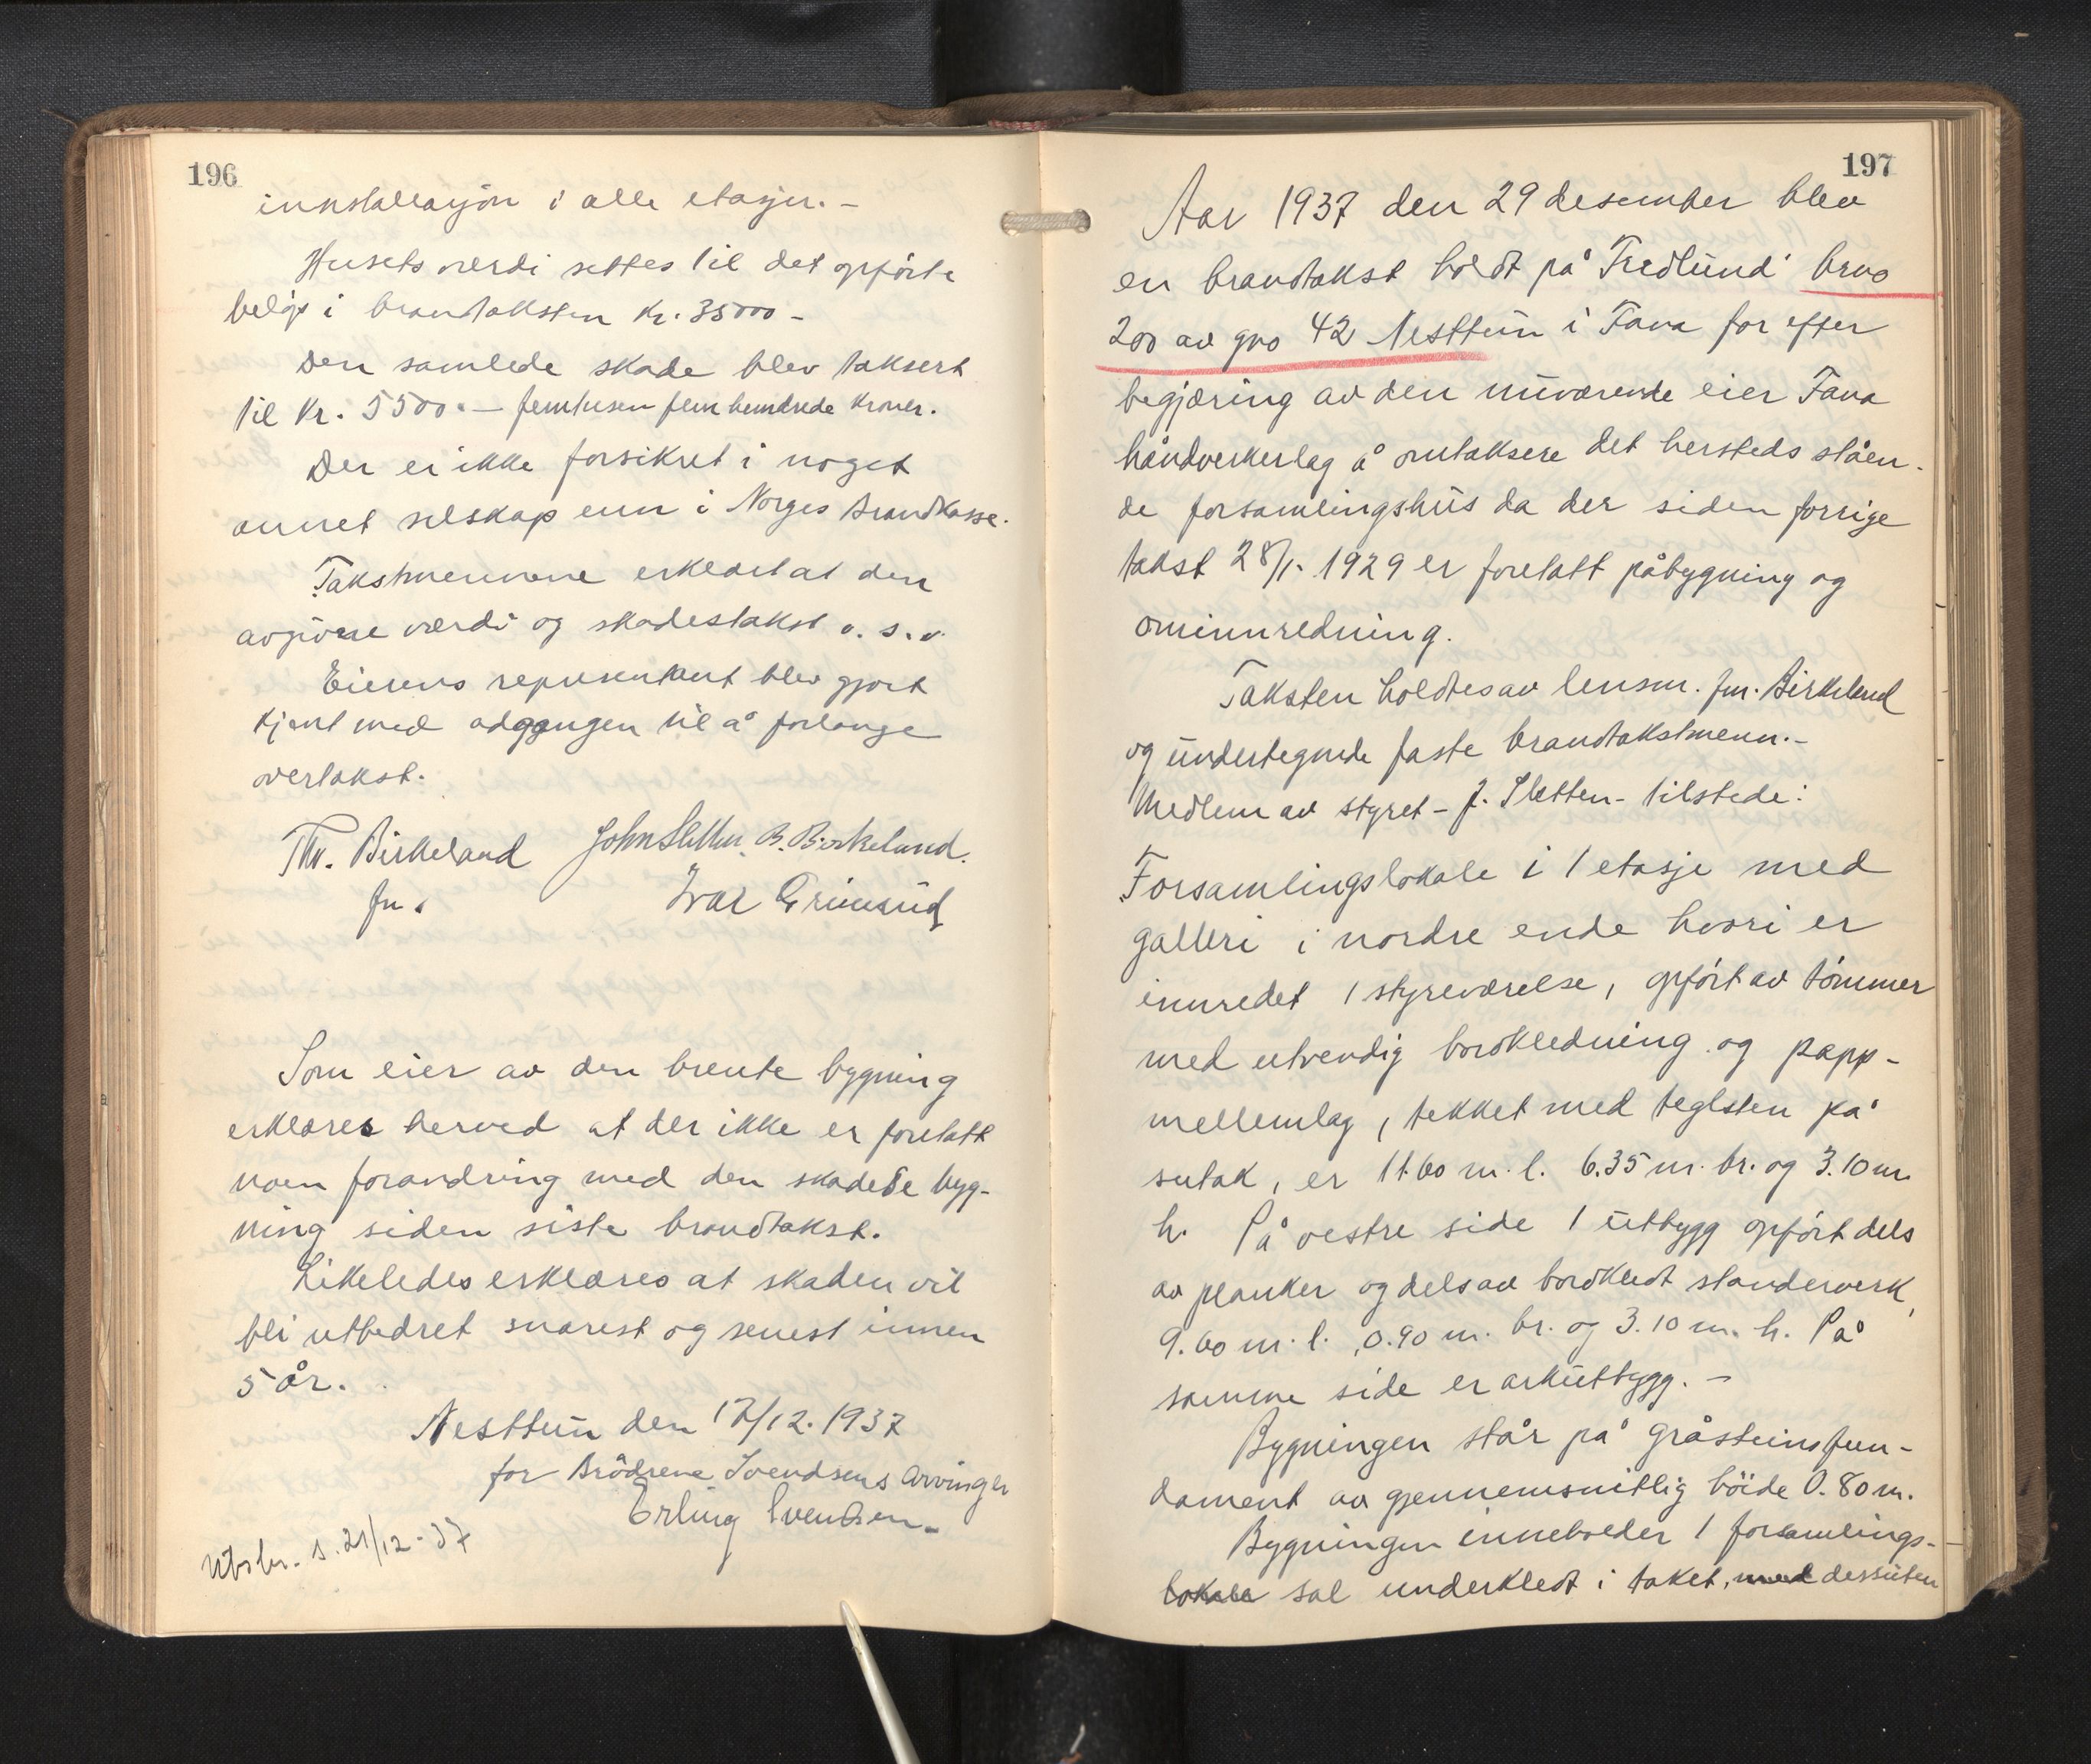 196
innstallasjon i alle etasjer. -
Husets verdi settes til det opførte
beløp i brandtaksten kr. 35000 -
Den samlede skade blev taksert
til kr. 5500. - femtusen fem hundrede kroner.
Der er ikke forsikret i noget
annet selskap enn i Norges Brandkasse.
Takstmennene erklært at den
avgivne værdi og skadestakst o. s. v.
Eierens representant blev gjort
kjent med adgangen til å forlange
overtakst.
Thv. Birkeland John Sletten. B. Birkeland.
fm. Ivar Grimseid
Som eier av den brente bygning
erklæres herved at der ikke er foretatt
noen forandring med den skadede byg-
ning siden siste brandtakst.
Likeledes erklæres at skaden vil
bli utbedret snarest og senest innen
5 år.
Nesttun den 17/12. 1937
for Brödrene Svendsens Arvinger
Erling Svendsen.
Utskr. s. 21/12-37
197
Aar 1937 den 29 desember blev
en brandtakst holdt på "Fredlund" brno
200 av gno 42 Nesttun i Fana for efter
begjæring av den nuværende eier Fana
håndverkerlag å omtaksere det hersteds ståen-
de forsamlingshus da der siden forrige
takst 28/1. 1929 er foretatt påbygning og
ominnredning.
Taksten holdtes av lensm. fm. Birkeland
og undertegnede faste brandtakstmenn. -
Medlem av styret - J. Sletten - tilstede:
Forsamlingslokale i 1 etasje med
galleri i nordre ende hvori er
innredet 1 styreværelse, opført av tömmer
med utvendig bordkledning og papp-
mellemlag, tekket med teglsten på
sutak, er 11.60 m. l. 6.35 m. br. og 3.10 m.
h. På vestre side 1 utbygg opfört dels
av planker og dels av bordkledt standerverk,
9.60 m. l. 0.90 m. br. og 3.10 m. h. På
samme side er arkutbygg. -
Bygningen står på gråsteinsfun-
dament av gjennemsnitlig höide 0.80 m.
Bygningen inneholder 1 forsamlings-
lokale sal underkledt i taket, med dessuten